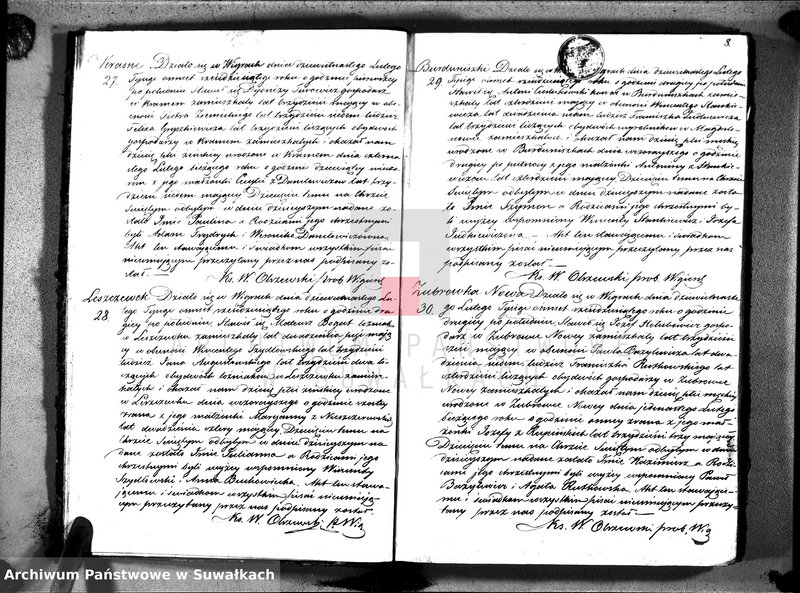 Krasne. Działo się w Wigrach dnia dziewiętnastego Lutego
27. Tysiąc ośmset sześćdziesiątego roku o godzinie pierwszej
po południu Stawił się Dyonizy gospodarz
w Krasnem zamieszkały lat trzydzieści mający w obe-
cności Piotra lat trzydzieści siedem tudzież
Felixa lat trzydzieści liczących obydwoch
gospodarzy w Krasnem zamieszkałych i okazał nam
dziecię płci żeńskiej urodzone w Krasnem dnia
Lutego bieżącego roku o godzinie dziewiątej
rem z jego małżonki Cecylii z Danilewiczów lat trzy-
dzieści siedem mającej Dziecięciu temu na Chrzcie
Świętym odbytym w dniu dzisiejszym nadane zo-
stało Imie Paulina a Rodzicami jego chrzestnymi
byli Adam Frydrych i Weronika Danilewiczowna
Akt ten stawającemu i świadkom wszystkim pisać
nieumiejącym przeczytany przez nas podpisany zo-
stał.—
Ks. W. Olszewski prob. Wigiersk
Leszczewek Działo się w Wigrach dnia dziewiętnastego Lu-
28. tego Tysiąc ośmset sześćdziesiątego roku o godzinie dru-
giej po południu Stawił się Mateusz Bogut
w Leszczewku zamieszkały lat dwadzieścia pięć mają-
cy w obecności Wincentego Szydłowskiego lat trzydzieści
tudzież Jana lat trzydzieści dwa li-
czących obydwoch w Leszczewku zamiesz-
kałych i okazał nam dziecię płci żeńskiej urodzone
w Leszczewku dnia wczorajszego o godzinie szóstej
zrana z jego małżonki Maryanny z
lat dwadzieścia cztery mającej Dziecięciu temu na
Chrzcie Świętym odbytym w dniu dzisiejszym na-
dane zostało Imie Julianna a Rodzicami jego
chrzestnymi byli wyżej wspomniony Wincenty
Szydłowski i Anna Akt ten stawa-
jącemu i świadkom wszystkim pisać nieumieją-
cym przeczytany przez nas podpisany został.—
Ks. W. Olszewski
8.
Burdeniszki Działo się w Wigrach dnia dziewiętnastego Lutego
29. Tysiąc ośmset sześćdziesiątego roku o godzinie drugiej po południu
Stawił się Antoni w Burdeniszkach zamie-
szkały lat czterdzieści mający w obecności Wincentego Stankie-
wicza lat tudzież Franciszka
lat trzydzieści liczących obydwoch
zamieszkałych i okazał nam dziecię płci męzkiej
urodzone w Burdeniszkach dnia wczorajszego o godzinie
drugiej po północy z jego małżonki Antoniny z
lat czterdzieści mającej Dziecięciu temu na Chrzcie
Świętym odbytym w dniu dzisiejszym nadane zosta-
ło Imie Szymon a Rodzicami jego chrzestnymi by-
li wyżej wspomniony Wincenty Stankiewicz i Józefa
Akt ten stawającemu i świadkom
wszystkim pisać nieumiejącym przeczytany przez nas
podpisany został.—
Ks. W. Olszewski prob. Wigiersk
Żubrowka Nowa Działo się w Wigrach dnia dziewiętnaste-
30. go Lutego Tysiąc ośmset sześćdziesiątego roku o godzinie
drugiej po południu Stawił się Józef gospo-
darz w Żubrowce Nowej zamieszkały lat trzydzieści
sześć mający w obecności Pawła Bazylewicza lat dwa-
dzieścia siedem tudzież Franciszka Rutkowskiego lat
czterdzieści liczących obydwoch gospodarzy w Żubrowce
Nowej zamieszkałych i okazał nam dziecię płci męzkiej
urodzone w Żubrowce Nowej dnia jedenastego Lutego
bieżącego roku o godzinie osmej zrana z jego mał-
żonki Józefy z lat trzydzieści trzy mającej
Dziecięciu temu na Chrzcie Świętym odbytym w dniu
dzisiejszym nadane zostało Imie Kazimierz a Rodzi-
cami jego chrzestnymi byli wyżej wspomniony Paweł
Bazylewicz i Agata Rutkowska. Akt ten stawające-
mu i świadkom wszystkim pisać nieumiejącym przeczy-
tany przez nas podpisany został—
Ks. W. Olszewski prob. Wig
Archiwum Państwowe w Suwałkach